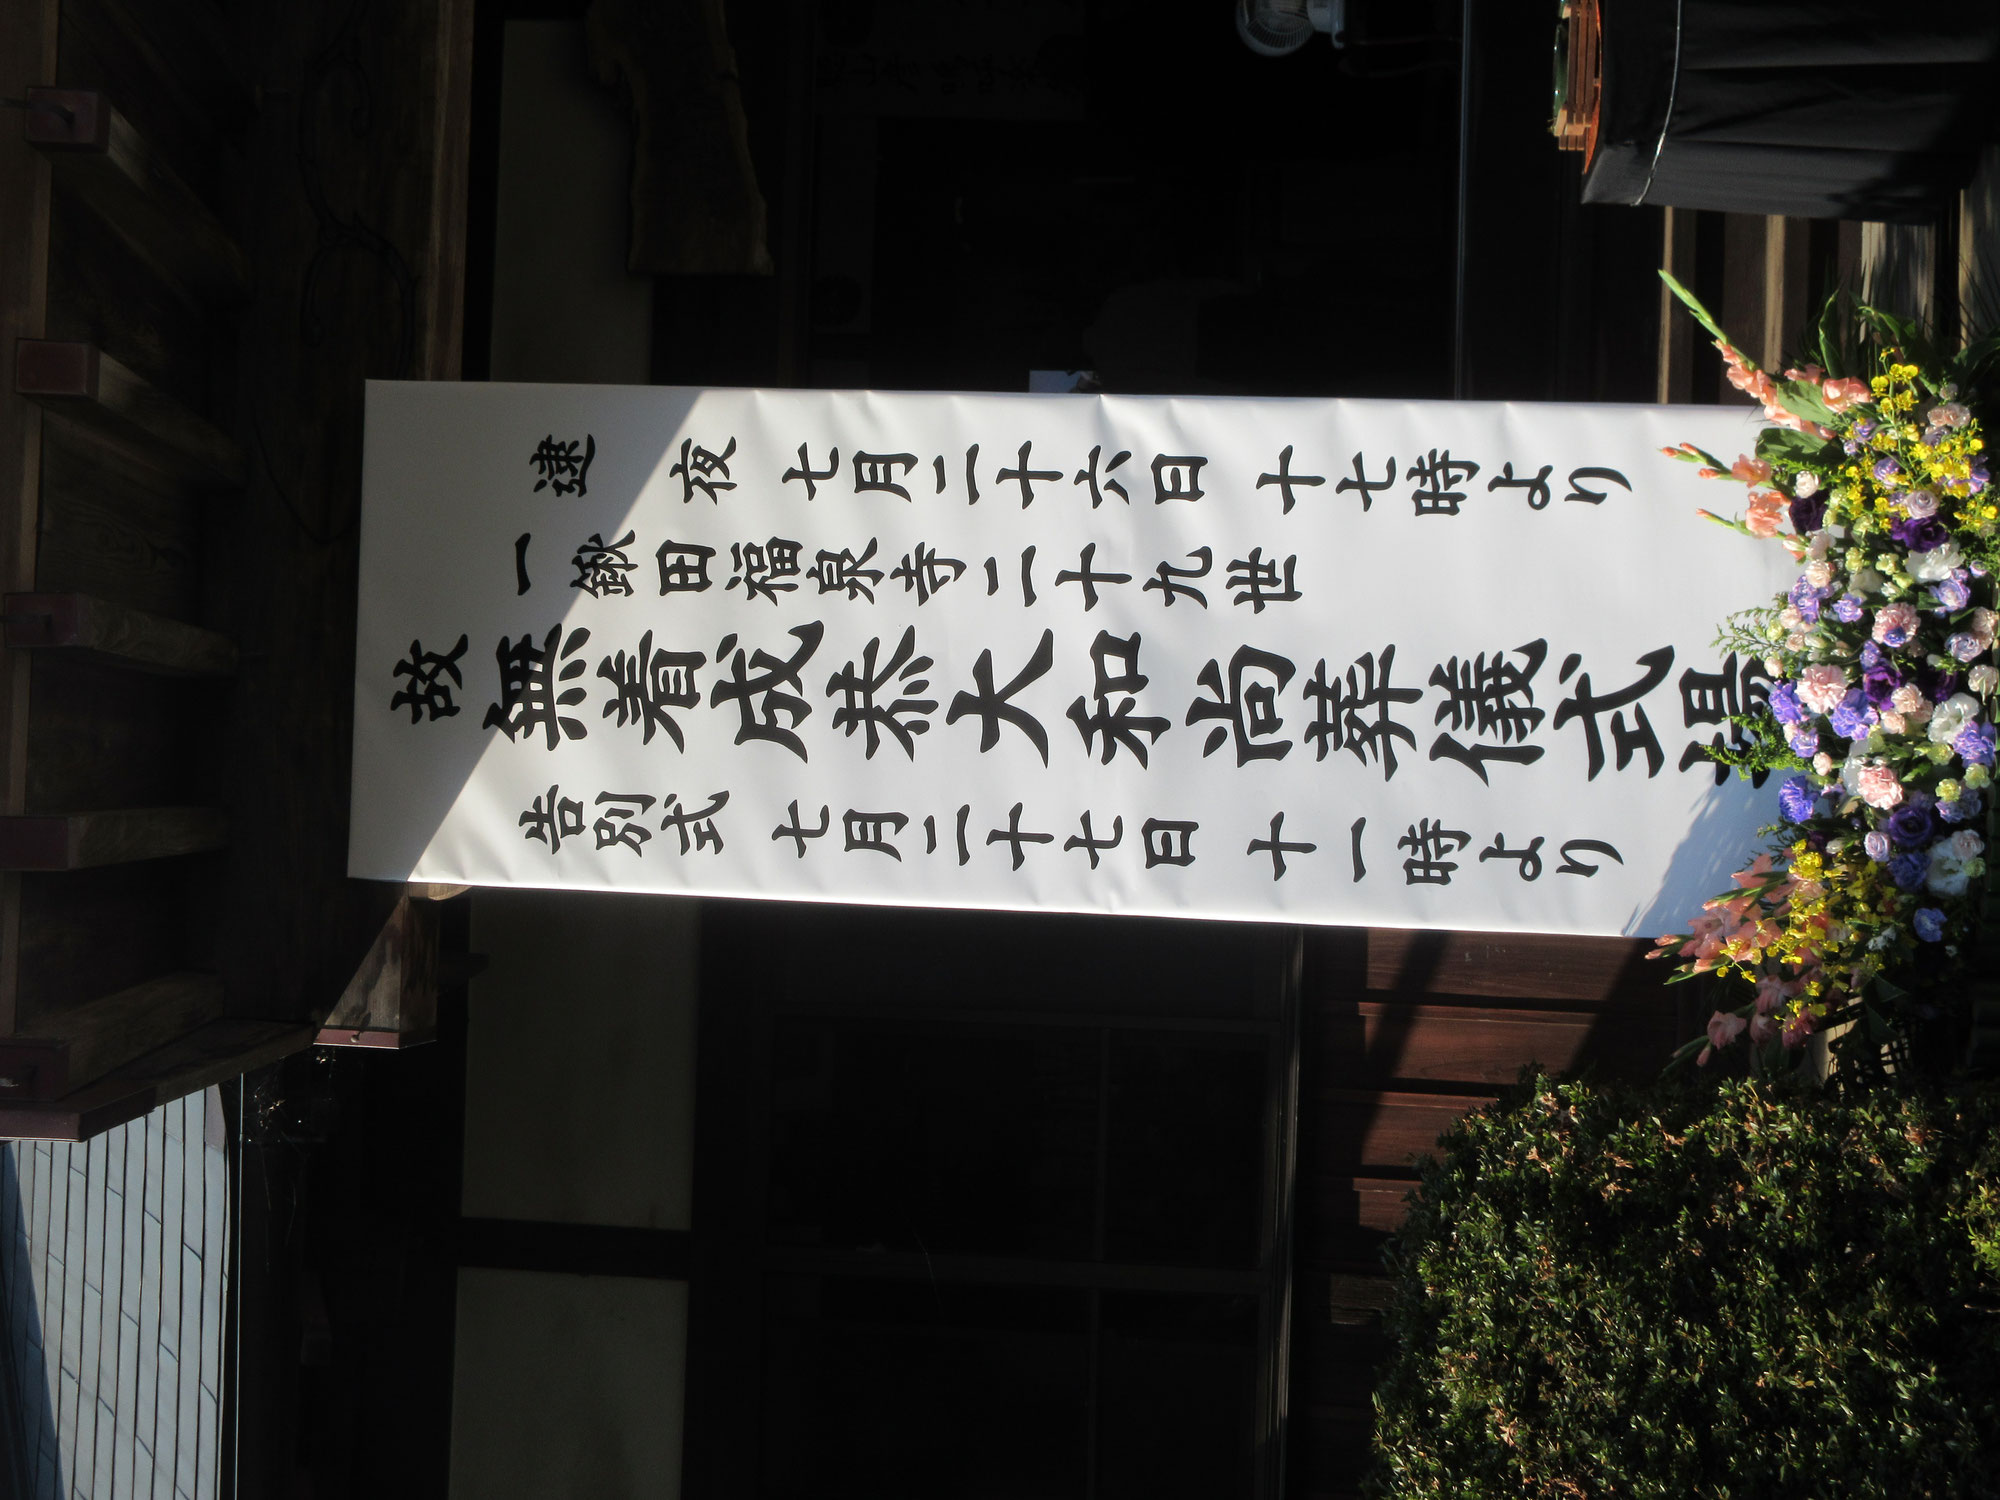 逮夜 七月二十六日 十七時より
一鍬田福泉寺二十九世
故 無着成恭大和尚葬儀式場
告別式 七月二十七日 十一時より